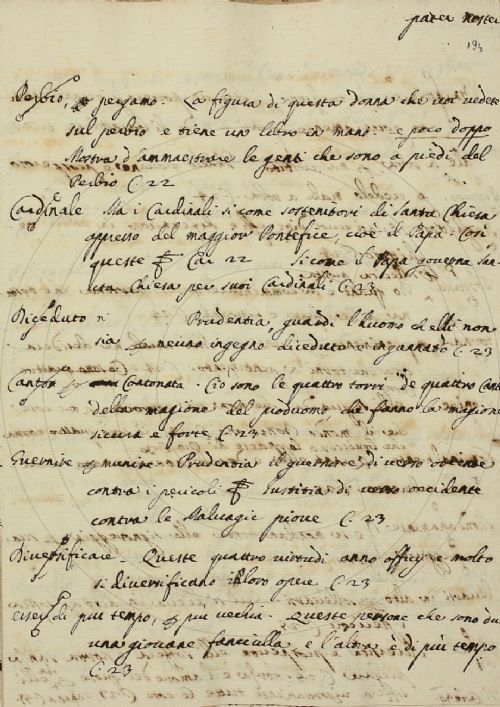 pater noster
193
Perbio, pergamo. La figura di questa donna che voi vedete
sul perbio e tiene un libro in mano: e poco doppo
Mostra d'ammaestrare le genti che sono a piedi del
Perbio C. 22
Cardinale Ma i Cardinali si come sostenitori di santa Chiesa
appresso del maggior Pontefice, cioè il Papa. Così
queste Car 22 sicome il Papa governa san-
ta Chiesa per suoi Cardinali C. 23
Diceduto n Prudentia, guardi l'huomo ch'elli non
sia neuno ingegno diceduto e ingannato C. 23
Canton Cantonata. Ciò sono le quattro torri de quattro Cant
della magione del produomo, che fanno la magione
sicura e forte C. 23
Guernire munire Prudentia il guernisce di verso
contra i pericoli Iustitia di verso occidente
contra le Malvagie piove C. 23
Diversificare. Queste quattro virtudi anno officij e molto
si diversificano in loro opere C. 23
di più tempo, più vechia. Queste persone che sono du
una giovane fanciulla e l'altra è di più tempo
C. 23